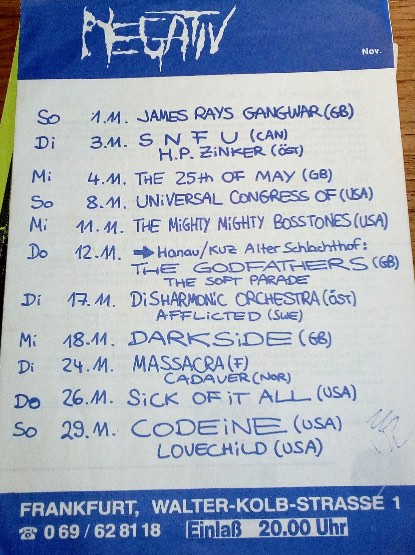 NEGATIV
Nov.
So 1.11. JAMES RAYS GANGWAR (GB)
Di 3.11. SNFU (CAN)
H.P. ZiNKER (ÖST)
Mi 4.11. THE 25th OF MAY (GB)
So 8.11. UNiVERSAL CONGRESS OF (USA)
Mi 11.11. THE MiGHTY MiGHTY BOSSTONES (USA)
Do 12.11. ➡ Hanau/KUZ Alter Schlachthof:
THE GODFATHERS (GB)
THE SOFT PARADE
Di 17.11. DiSHARMONiC ORCHESTRA (ÖST)
AFFLiCTED (SWE)
Mi 18.11. DARKSiDE (GB)
Di 24.11. MASSACRA (F)
CADAVER (NOR)
Do 26.11. SiCK OF iT ALL (USA)
So 29.11. CODEiNE (USA)
LOVECHiLD (USA)
FRANKFURT, WALTER-KOLB-STRASSE 1
☎ 0 69 / 62 81 18 Einlaß 20.00 Uhr